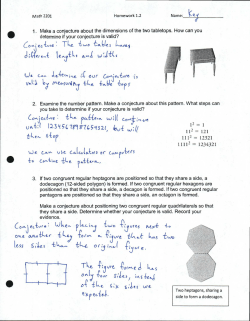 Math 2201
Homework 1.2
Name: Key
1. Make a conjecture about the dimensions of the two tabletops. How can you
determine if your conjecture is valid?
Conjecture: The two tables have
different lengths and widths.
We can determine if our conjecture is
valid by measuring the table tops
2. Examine the number pattern. Make a conjecture about this pattern. What steps can
you take to determine if your conjecture is valid?
Conjecture: the pattern will continue
until 12345678987654321, but will
then stop.
We can use calculators or computers
to continue the pattern.
1² = 1
11² = 121
111² = 12321
1111² = 1234321
3. If two congruent regular heptagons are positioned so that they share a side, a
dodecagon (12-sided polygon) is formed. If two congruent regular hexagons are
positioned so that they share a side, a decagon is formed. If two congruent regular
pentagons are positioned so that they share a side, an octagon is formed.
Make a conjecture about positioning two congruent regular quadrilaterals so that
they share a side. Determine whether your conjecture is valid. Record your
evidence.
Conjecture: When placing two figures next to
one another they form a figure that has two
less sides than the original figure.
The figure formed has
only four sides, instead
of the six sides we
expected.
Two heptagons, sharing a
side to form a dodecagon.